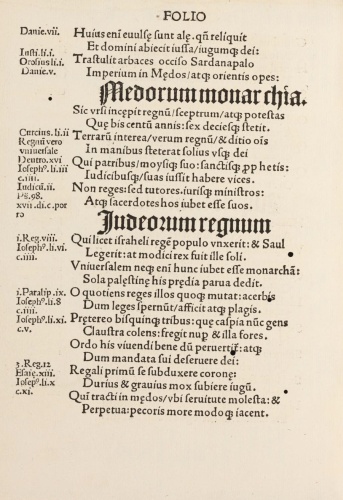 FOLIO
Danie.vii. Huius enī euulsę sunt alę. qn̄ reliquit
Et domini abiecit iussa/iugumq; dei:
Iusti.li.i. Trastulit arbaces occiso Sardanapalo
Orosius li.i
Danie.v. Imperium in Mędos/atq; orientis opes:
Medorum monarchia.
Sic vrsi incępit regnū/sceptrum/atq; potestas
Quę bis centū annis: sex deciesq; stetit.
Curcius.li.ii Terrarū interea/verum regnū/& ditio oīs
Regnū vero In manibus steterat solius vsq; dei
vniuersale
Deutro.xvi Qui patribus/moysiq; suo: sanctisq; ꝓphetis:
Iosephꝰ.li.iii Iudicibusq;/suas iussit habere vices.
c.iiii.
Iudicū.ii. Non reges: sed tutores. iurisq; ministros:
Ps.98. Atq; sacerdotes hos iubet esse suos.
xvii.di.c.por
ro
Iudeorum regnum
i.Reg.viii. Qui licet israheli regē populo vnxerit: & Saul
Iosephꝰ.li.vi. Legerit: at modici rex fuit ille soli.
c.iiii.
Vniuersalem neq; enī hunc iubet esse monarchā:
Sola palęstinę his prędia parua dedit.
i.Paralip.ix. O quotiens reges illos quoq; mutat: acerbis
Iosephꝰ.li.8 Dum leges spernūt/afficit atq; plagis.
c.iiii.
Iosephꝰ.li.xi. Pręterēo bisquinq; tribus: quę caspia nūc gens
c.v. Claustra colens: fregit nuꝑ & illa fores.
Ordo his viuendi bene dū peruertit: atq;
Dum mandata sui deseruere dei:
3.Reg.12 Regali primū se subduxere coronę:
Esaię.xiii. Durius & grauius mox subiere iugū.
Iosepꝰ.li.x
c.xi. Quī tracti in mędos/vbi seruitute molesta: &
Perpetua: pecoris more modoq; iacent.